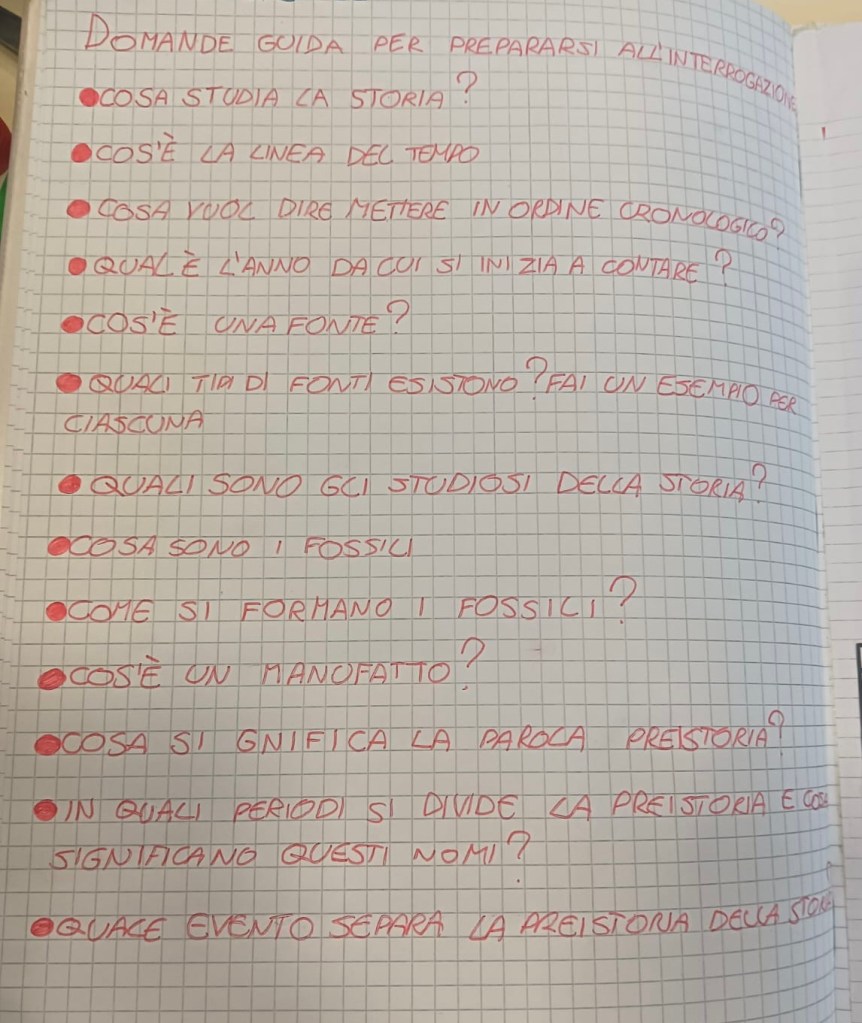 DOMANDE GUIDA PER PREPARARSI ALL'INTERROGAZIONE
•COSA STUDIA LA STORIA?
•COS'È LA LINEA DEL TEMPO
•COSA VUOL DIRE METTERE IN ORDINE CRONOLOGICO?
•QUAL È L'ANNO DA CUI SI INIZIA A CONTARE?
•COS'È UNA FONTE?
•QUALI TIPI DI FONTI ESISTONO? FAI UN ESEMPIO PER
CIASCUNA
•QUALI SONO GLI STUDIOSI DELLA STORIA?
•COSA SONO I FOSSILI
•COME SI FORMANO I FOSSILI?
•COS'È UN MANOFATTO?
•COSA SIGNIFICA LA PAROLA PREISTORIA?
•IN QUALI PERIODI SI DIVIDE LA PREISTORIA E COSA
SIGNIFICANO QUESTI NOMI?
•QUALE EVENTO SEPARA LA PREISTORIA DELLA STORIA